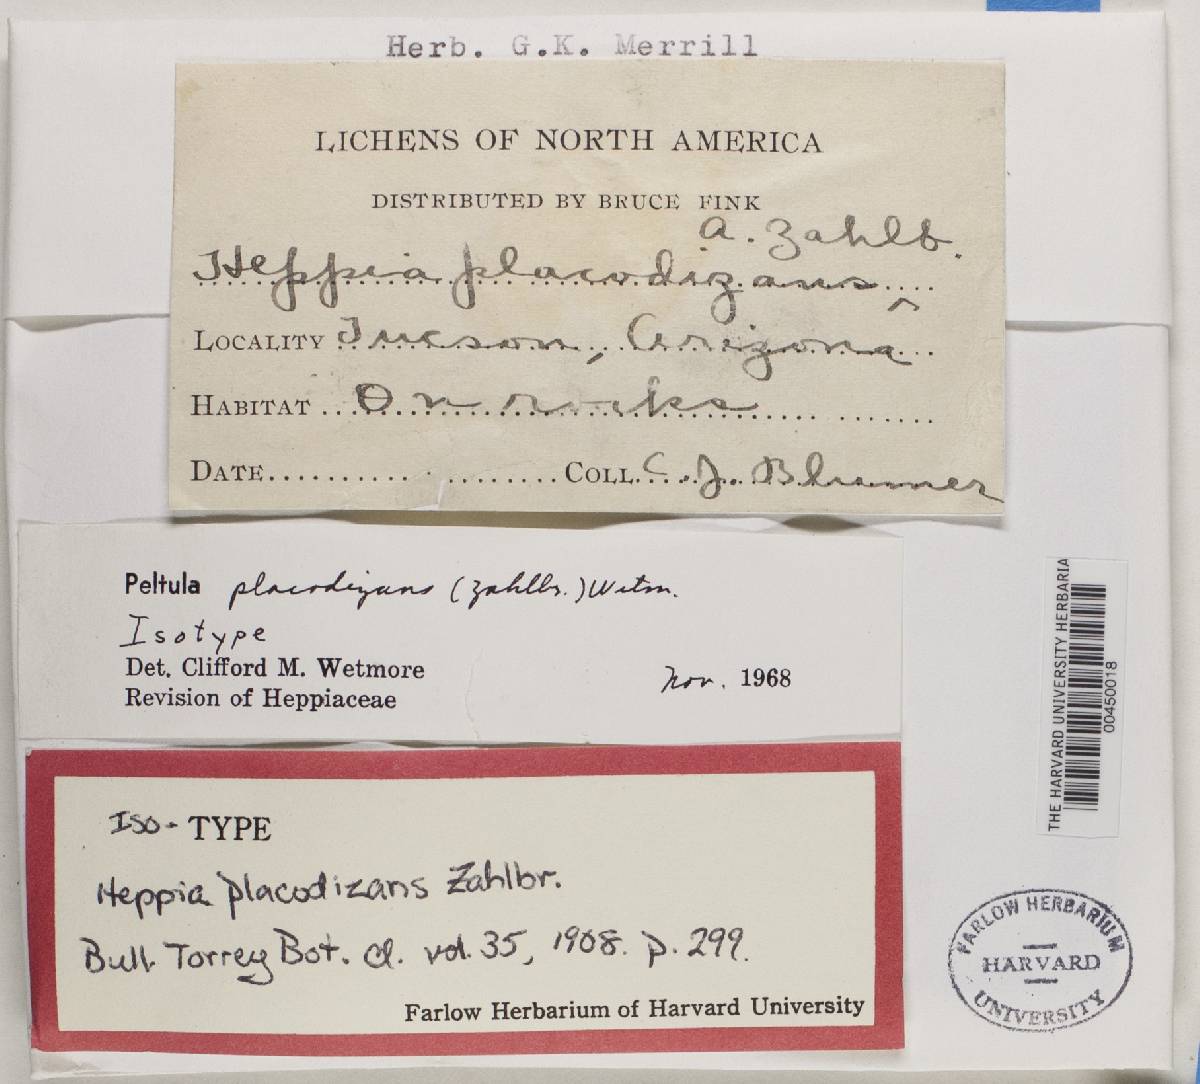 Herb. G.K. Merrill
LICHENS OF NORTH AMERICA
DISTRIBUTED BY BRUCE FINK
A. Zahlb.
Heppia placodizans ^
LOCALITY Tucson, Arizona
HABITAT On rocks
DATE.................... COLL. C. J. Blumer
Peltula placodizans (Zahlbr.) Wetm.
Isotype
Det. Clifford M. Wetmore Nov. 1968
Revision of Heppiaceae
Iso-TYPE
Heppia placodizans Zahlbr.
Bull. Torrey Bot. Cl. vol. 35, 1908. p. 299.
Farlow Herbarium of Harvard University
THE HARVARD UNIVERSITY HERBARIA
00450018
FARLOW HERBARIUM
HARVARD
UNIVERSITY